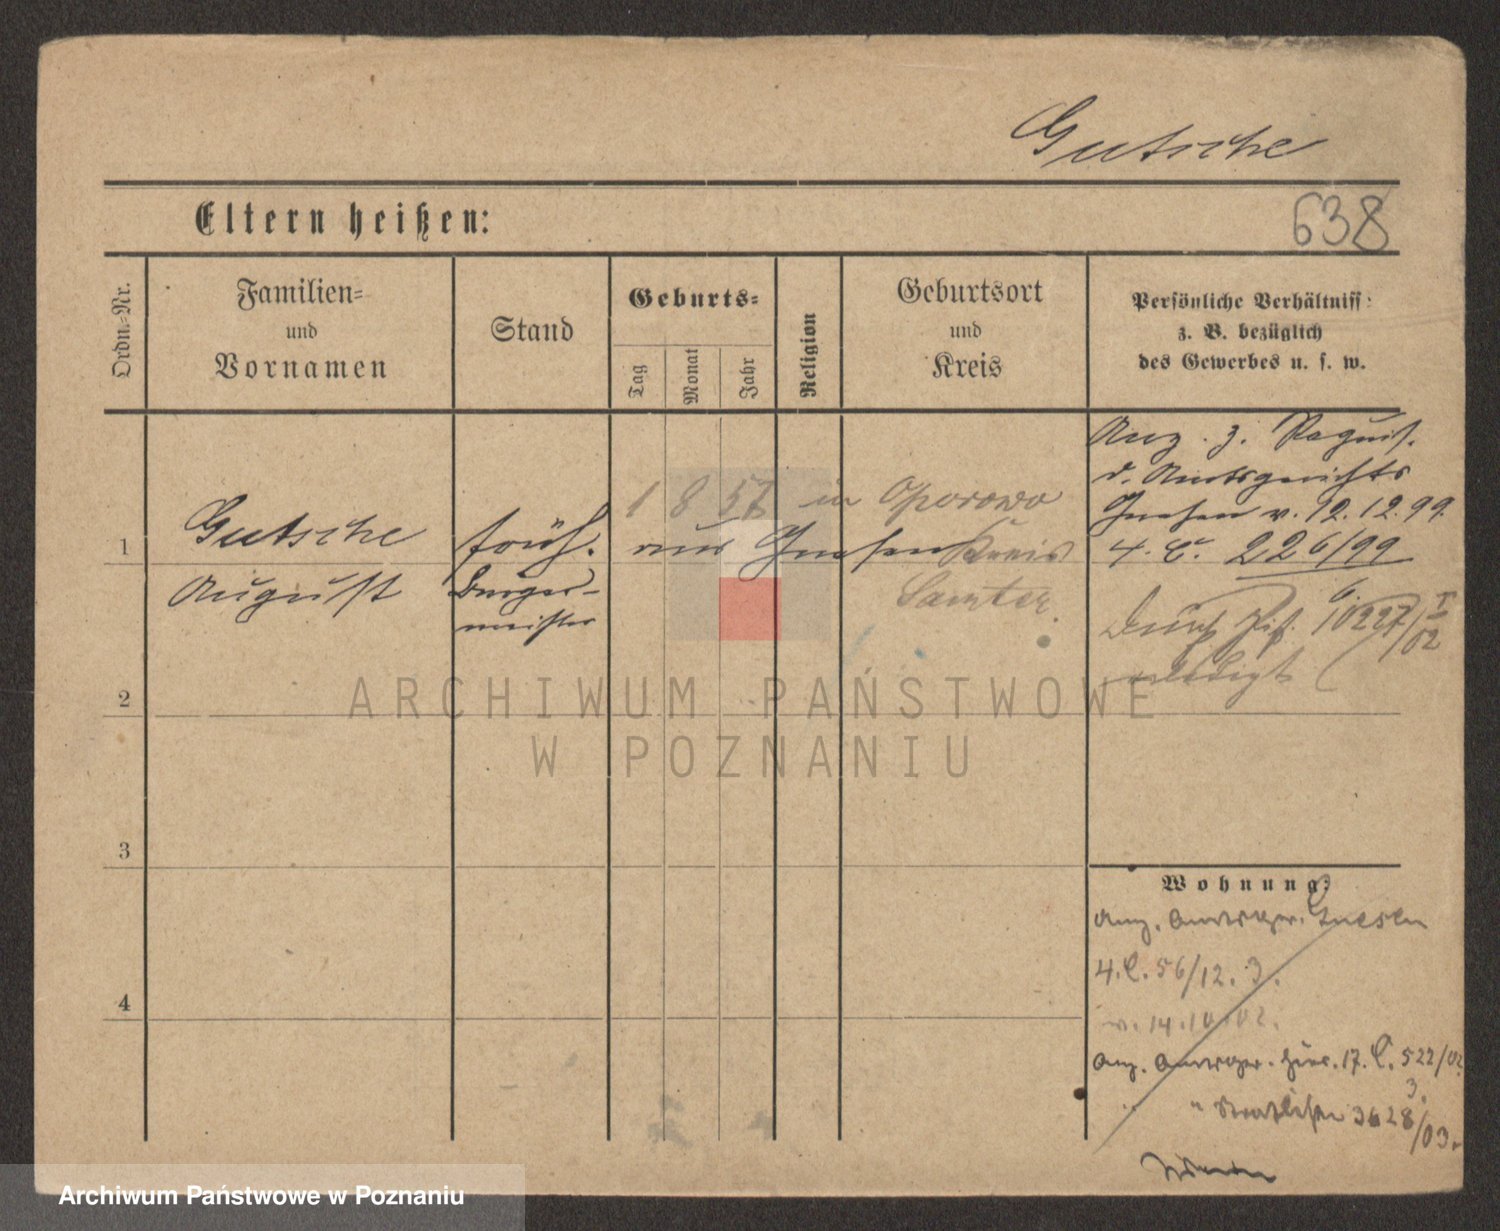 Gutsche
Eltern heißen:
638
Ordn.-Nr.
Familien-
und
Vornamen
Stand
Geburts-
Tag
Monat
Jahr
Religion
Geburtsort
und
Kreis
Persönliche Verhältniss
z. B. bezüglich
des Gewerbes u. s. w.
1
Gutsche
August
früh.
Bürger-
meister
1 8 57 in Oporowo
aus Gnesen Kreis
Samter
Anz. z. Requis.
d. Amtsgerichts
Gnesen v. 12.12.99.
4. C. 226/99
Durch 10227/02
erledigt
2
3
4
Wohnung:
Anz. Amtsger. Gnesen
4.C.56/12.3.
v. 14.10.02.
Anz. Amtsger. hier. 17.C.522/02
3.
" 3628/03.
ARCHIWUM PAŃSTWOWE
W POZNANIU
Archiwum Państwowe w Poznaniu